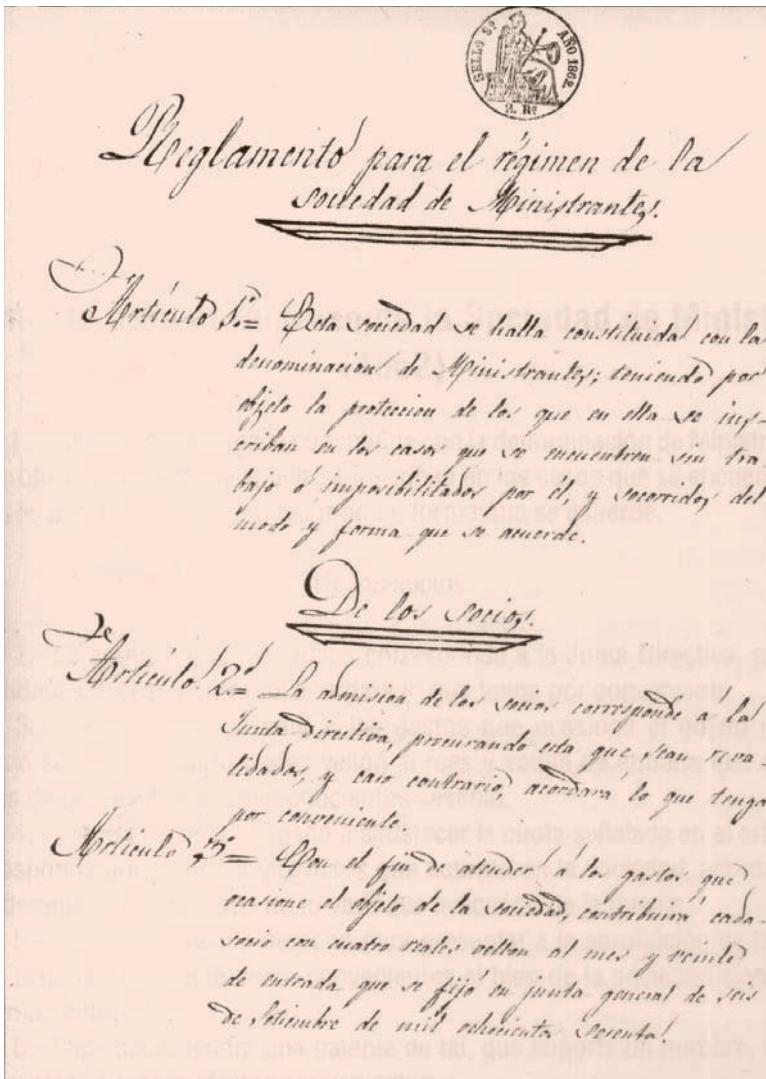 SELLO 9º AÑO 1862.
2. Rs
Reglamento para el régimen de la
sociedad de Ministrantes.
Artículo 1º= Esta sociedad se halla constituida con la
denominacion de Ministrantes; teniendo por
objeto la proteccion de los que en ella se ins-
criban en los casos que se encuentren sin tra
bajo ó imposibilitados por él, y socorridos del
modo y forma que se acuerde.
De los socios.
Artículo 2º= La admision de los socios corresponde á la
Junta directiva, procurando esta que sean reva
lidados, y caso contrario, acordará lo que tenga
por conveniente.
Artículo 3º= Con el fin de atender á los gastos que
ocasione el objeto de la sociedad, contribuirá cada
socio con cuatro reales vellon al mes y veinte
de entrada que se fijó en junta general de seis
de Setiembre de mil ochocienta sesenta.